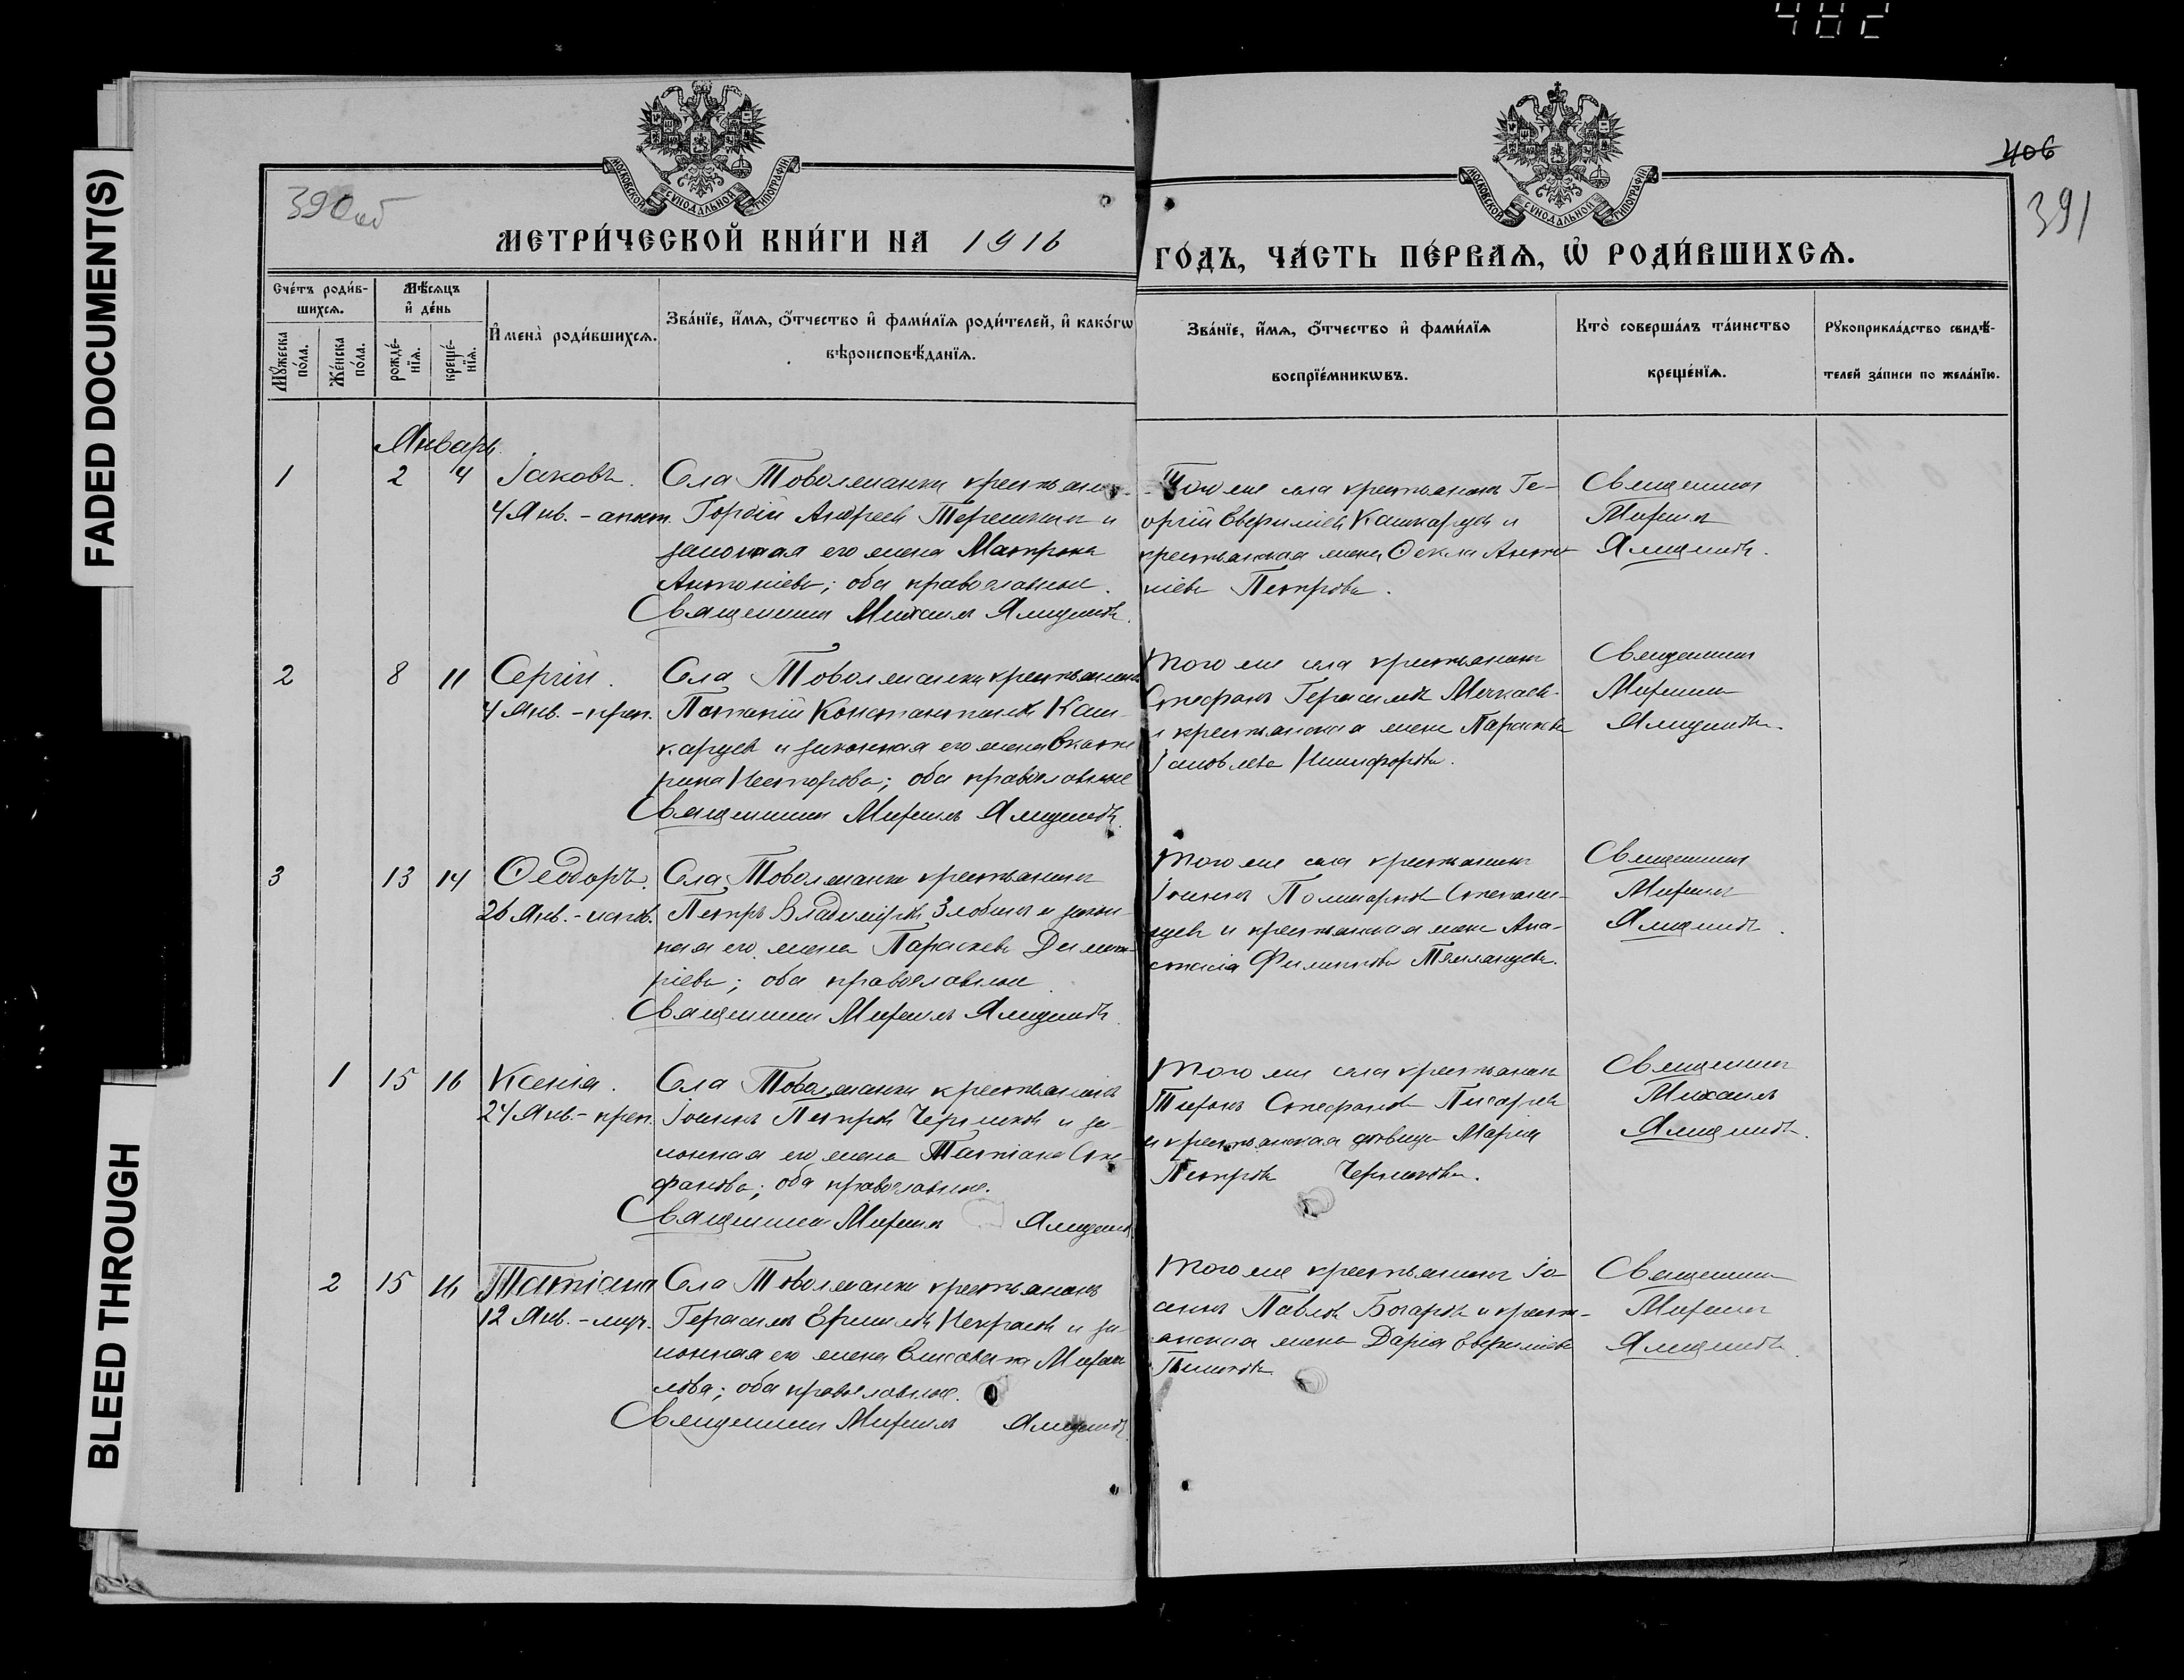 482
FADED DOCUMENT(S)
BLEED THROUGH
406
390об
391
МОСКОВСКОЙ СѴНОДАЛЬНОЙ ТИПОГРАФІИ
МОСКОВСКОЙ СѴНОДАЛЬНОЙ ТИПОГРАФІИ
МЕТРИ́ЧЕСКОЙ КНИ́ГИ НА 1916
ГО́ДЪ, ЧА́СТЬ ПЕ́РВАѦ, Ѡ҆ РОДИ́ВШИХСѦ.
Сче́тъ роди́в-
шихсѧ.
Мꙋ́жеска по́ла.
Же́нска по́ла.
Мѣ́сѧцъ
и҆ де́нь
рожде́-
нїѧ.
креще́-
нїѧ.
И҆мена̀ роди́вшихсѧ.
Зва́нїе, и҆́мѧ, ѻ҆́тчество и҆ фами́лїѧ роди́телей, и҆ како́гѡ
вѣроисповѣ́данїѧ.
Зва́нїе, и҆́мѧ, ѻ҆́тчество и҆ фами́лїѧ
воспрїе́мникѡвъ.
Кто̀ соверша́лъ та́инство
креще́нїѧ.
Рꙋкоприкла́дство свидѣ́-
телей за́писи по жела́нїю.
Январь
1 2 4 Іаковъ.
4 Янв. - апост.
Села Товолжанки крестьянинъ
Гордій Андреевъ Терешкинъ и
законная его жена Матрона
Антоніева; оба православные.
Священникъ Михаилъ
Того же села крестьянинъ Ге-
оргій Евфиміевъ Кашкарцевъ и
крестьянская жена Ѳекла Анто-
ніева Петрова.
Священникъ
Михаилъ
2 8 11 Сергій.
4 Янв. - преп.
Села Товолжанки крестьянинъ
Потапій Константиновъ Каш-
карцевъ и законная его жена Екате
рина Несторова; оба православные
Священникъ Михаилъ
Того же села крестьянинъ
Стефанъ Герасимовъ
и крестьянская жена Параскева
Іаковлева Никифорова.
Священникъ
Михаилъ
3 13 14 Ѳеодоръ.
26 Янв. - испов.
Села Товолжанки крестьянинъ
Петръ Владиміровъ Злобинъ и закон-
ная его жена Параскева Димит-
ріева; оба православные
Священникъ Михаилъ
Того же села крестьянинъ
Іоаннъ Поликарповъ
и крестьянская жена Ана-
стасія Филиппова
Священникъ
Михаилъ
1 15 16 Ксенія.
24 Янв. - преп.
Села Товолжанки крестьянинъ
Іоаннъ Петровъ Черниковъ и за-
конная его жена Татіана Сте-
фанова; оба православные.
Священникъ Михаилъ
Того же села крестьянинъ
Стефановъ Писаревъ
и крестьянская дѣвица Марія
Петрова Черникова.
Священникъ
Михаилъ
2 15 16 Татіана
12 Янв. - муч.
Села Товолжанки крестьянинъ
Герасимъ Ермиловъ Некрасовъ и за-
конная его жена Елисавета Михаи
лова; оба православные.
Священникъ Михаилъ
Того же крестьянинъ Іо-
аннъ Павловъ и крестьянская
жена Дарія Евфиміева
Священникъ
Михаилъ